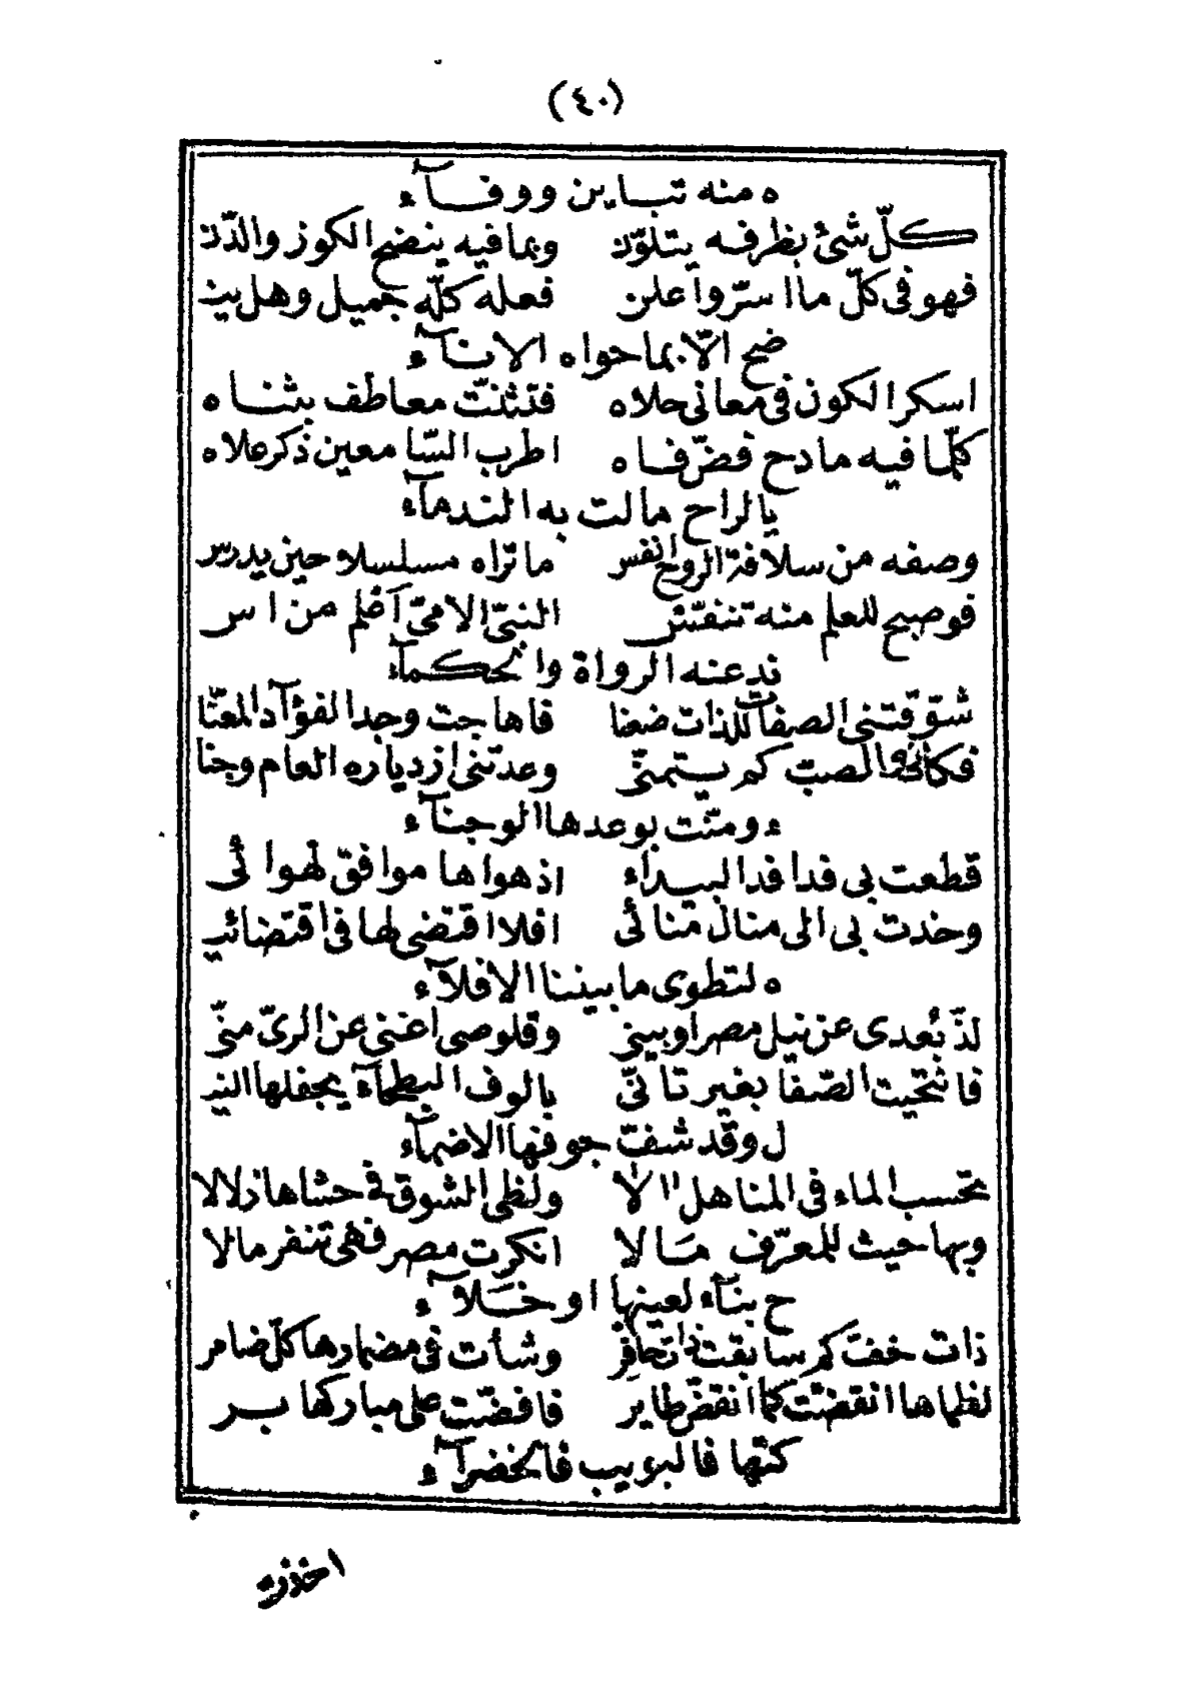 (٤٠)
ه منه تباين ووفآء
كلّ شئ بظرفه يتلوّن وبما فيه ينضح الكوز والدّن
فهو فى كلّ ما اسرّوا علن فعله كلّه جميل وهل ين
ضح الّا بما حواه الانآء
اسكر الكون فى معانى حلاه فتثنّت معاطف بثناه
كلّما فيه مادح فضّ فاه اطرب السّامعين ذكر علاه
يالراح مالت به الندمآء
وصفه من سلافة الروح انفس ما تراه مسلسلا حين يدرس
فوصيح للعلم منه تنفّس النبىّ الامىّ آعلم من اس
ند عنه الرواة والحكمآء
شوّقتنى الصفات للذات ضعنا فاهاجت وجد الفؤآد المعنّا
فكأنى والصبّ كم يتمنّى وعدتنى ازدياره العام وجنا
ء ومنّت بوعدها الوجنآء
قطعت بى فدافد البيدآء اذ هواها موافق لهوائى
وخدت بى الى منال تنائى افلا اقتضى لها فى اقتضائيـ
ه لتطوى ما بيننا الافلآء
لذّ بُعدى عن نيل مصر وبينى وقلوصى اغنى عن الرىّ منّى
فانتحيت الصّفا بغير تانّى بالوف البطحآء يجفلها النيـ
ل وقد شفّ جوفها الاضمآء
تحسب الماء فى المناهل الا ولظى الشوق فى حشاها زلالا
وبها حيث للمعرّف مَالا انكرت مصر فهى تنفر مالا
ح بنآء لعينها او خَلآء
ذات خفّ كم سابقت ذات حافِر وشأت فى مضمارها كلّ ضامر
لظماها انقضّت كما انقضّ طاير فافضّت على مباركها بـر
كتها فالبويب فالخضرآء
اخذت